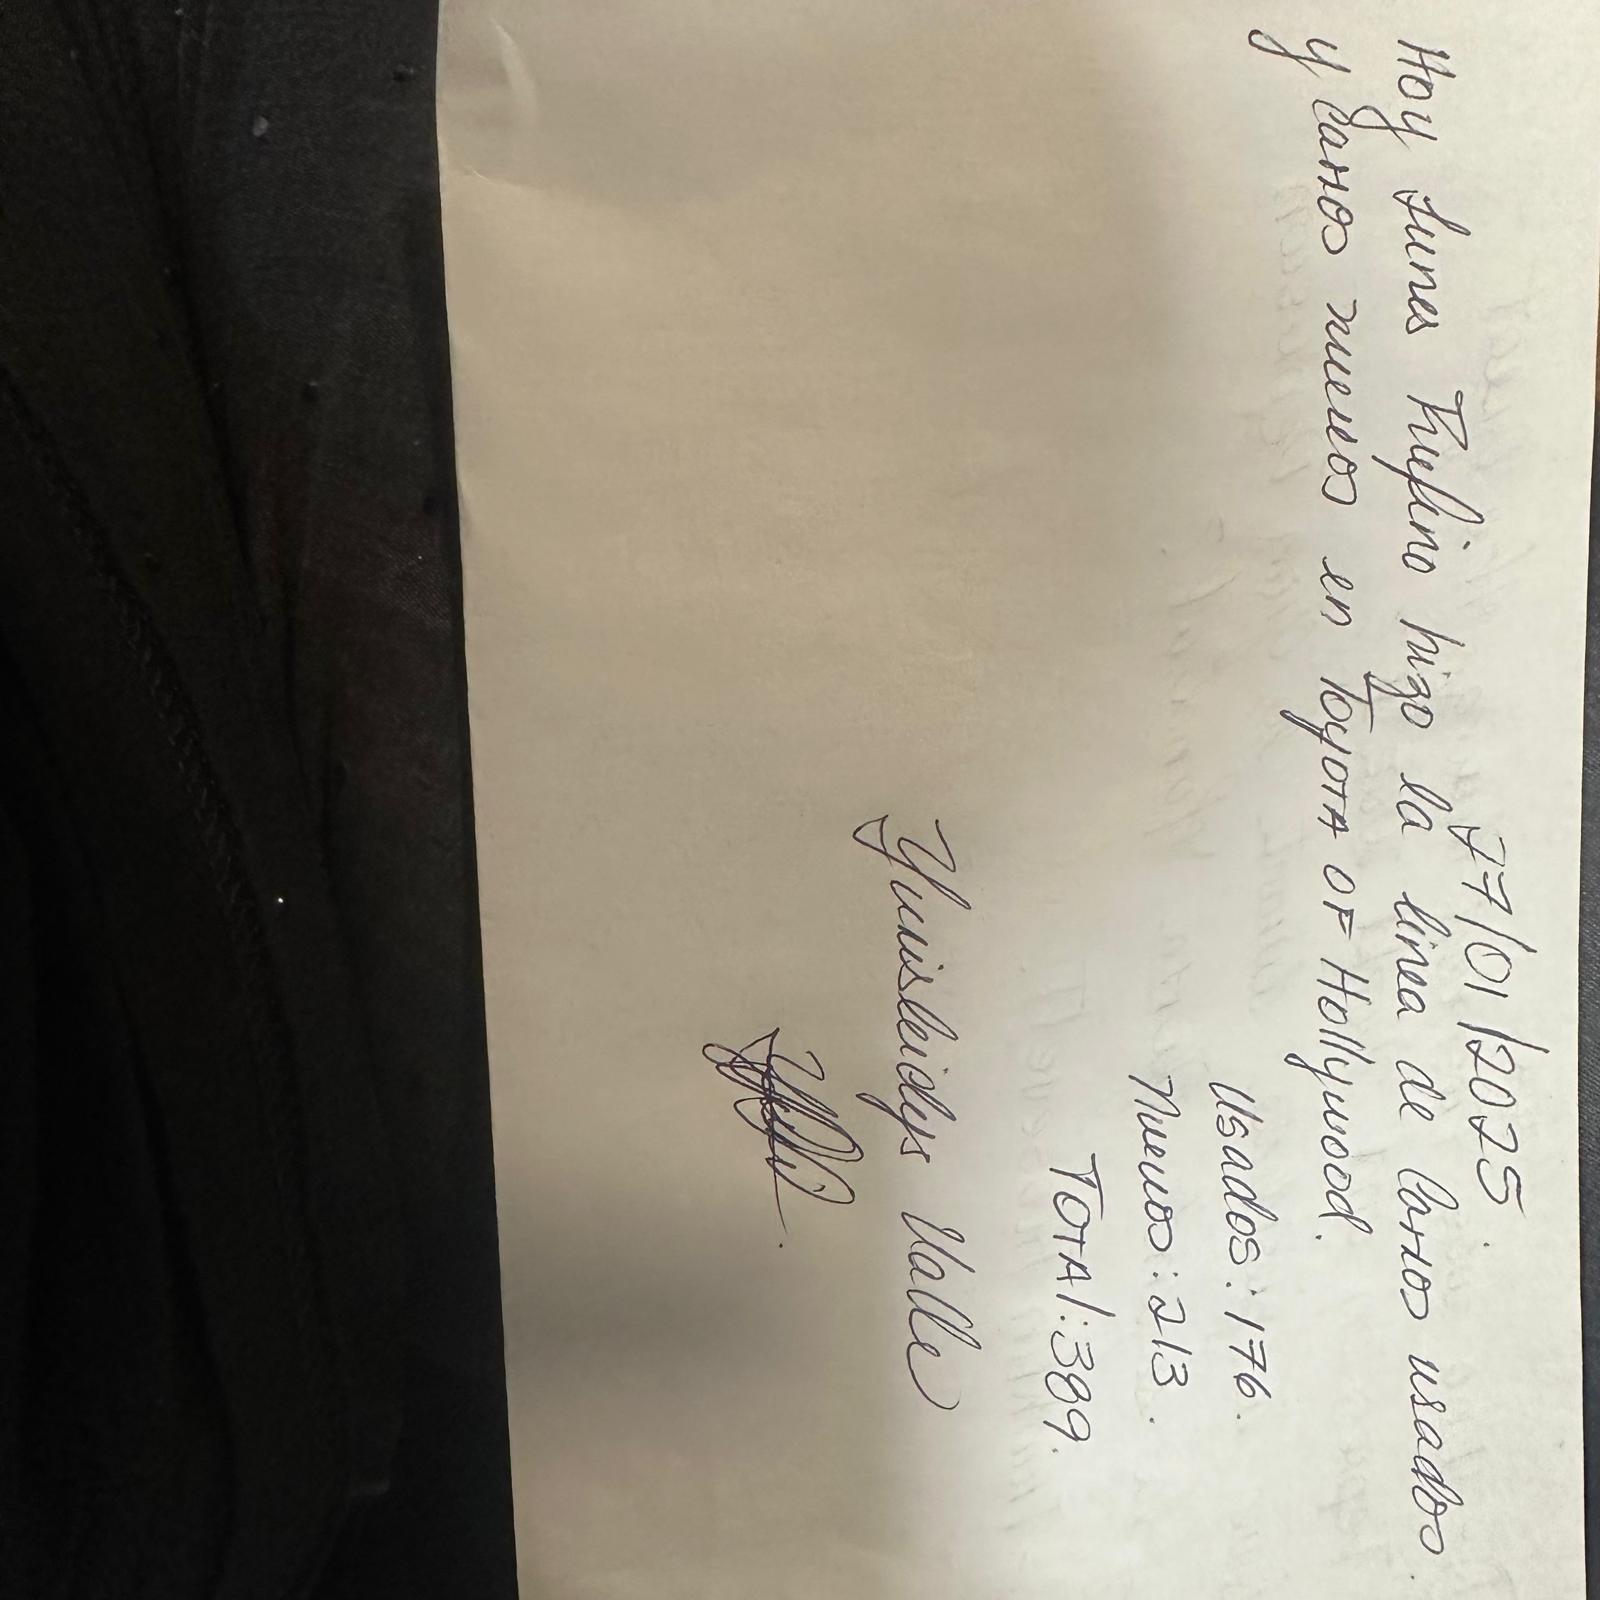 27/01/2025.
Hoy Lunes Rufino hizo la linea de Carros usados
y Carros nuevos en Toyota OF Hollywood.
Usados: 176.
Nuevos: 213.
Total: 389.
Yunisleidys Valle